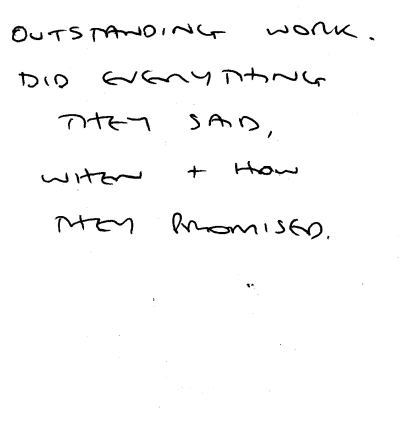 OUTSTANDING WORK.
DID EVERYTHING
THEY SAID,
WHEN + HOW
THEY PROMISED.